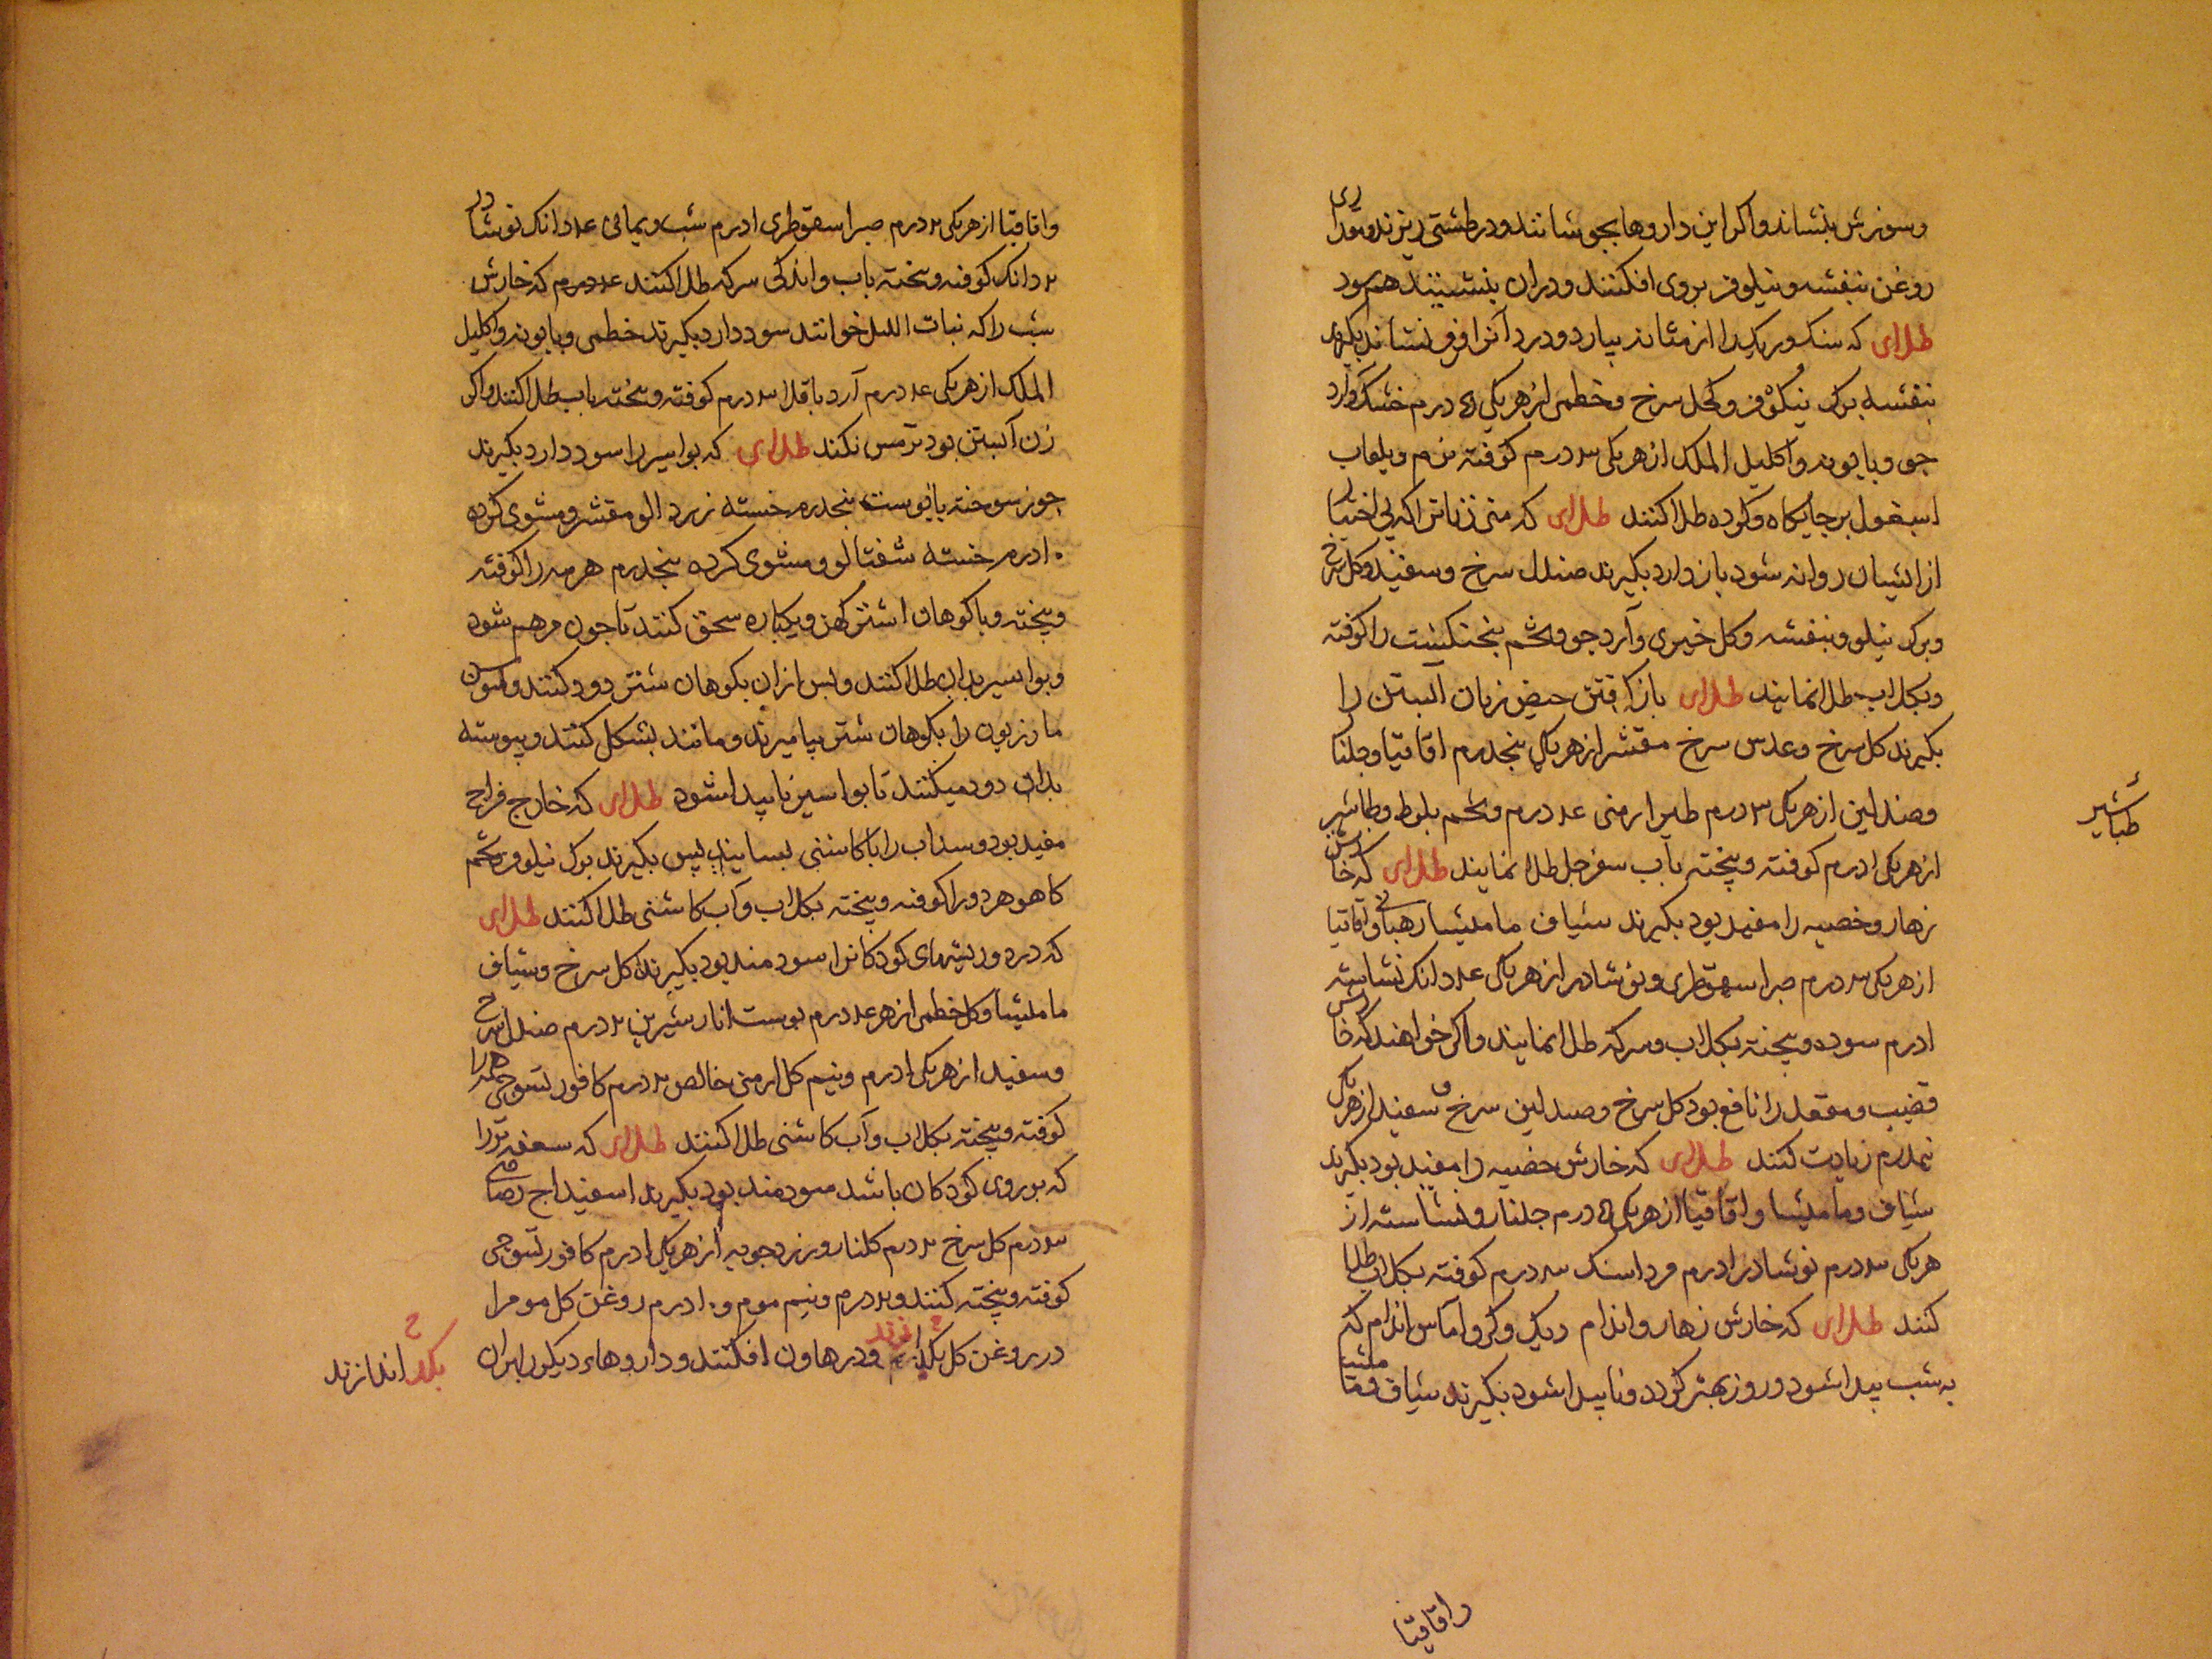 وسوزش بنشاند واکر این داروها بجوشانند ودر طشتی ریزند وقدری
روغن بنفشه ونیلوفر بروی افکنند ودران بنشینند هم سود
طلای که سنک وریک را از مثانه بیارد ودرد آنرا فرو نشاند بکیرند
بنفشه برک نیلوفر وکل سرخ وخطمی از هریکی ۵ درم خشک وآرد
جو وبابونه واکلیل الملک از هریکی ۳ درم کوفته نرم وبلعاب
اسبغول بر جایکاه وکرده طلا کنند طلای که منی زنانرا که بی اختیار
از ایشان روانه شود باز دارد بکیرند صندل سرخ وسفید وکل سرخ
وبرک نیلو وبنفشه وکل خیری وآرد جو وتخم پنجنکشت را کوفته
وبکلاب طلا نمایند طلای باز کرفتن حیض زنان آبستن را
بکیرند کل سرخ وعدس سرخ مقشر از هریکی پنجدرم اقاقیا وجلنار
وصندلین از هریک ۳ درم طین ارمنی ۴ درم وتخم بلوط وطباشیر
طباشیر
از هریکی ۱ درم کوفته وبیخته بآب سفرجل طلا نمایند طلای که خارش
زهار وخصیه را مفید بود بکیرند شیاف مامیثا رهبانی واقاقیا
از هریکی ۳ درم صبر اسقوطری ونوشادر از هریکی ۴ دانک نشاسته
۱ درم سوده وبیخته بکلاب وسرکه طلا نمایند واکر خواهند که خارش
قضیب ومقعد را نافع بود کل سرخ وصندلین سرخ وسفید از هریکی
نیمدرم زیادت کنند طلای که خارش خصیه را مفید بود بکیرند
شیاف ومامیثا واقاقیا از هریکی ۵ درم جلنار ونشاسته از
هریکی ۳ درم نوشادر ۱ درم مرداسنک ۳ درم کوفته بکلاب طلا
کنند طلای که خارش زهار واندام دیک وکر وآماس اندام که
به شب پیدا شود وروز بهتر کردد وناپیدا شود بکیرند شیاف ومامیثا
واقاقیا
واقاقیا از هریکی ۲ درم صبر اسقوطری ۱ درم شب ویمانی ۴ دانک نوشادر
۲ دانک کوفته وبیخته بآب واندکی سرکه طلا کنند ۴ درم که خارش
شب را که نبات اللیل خوانند سود دارد بکیرند خطمی وبابونه واکلیل
الملک از هریکی ۴ درم آرد باقلا ۳ درم کوفته وبیخته بآب طلا کنند واکر
زن آبستن بود ترمس نکند طلای که بواسیر را سود دارد بکیرند
جوز سوخته با پوست پنجدرم خسته زرد الو مقشر ومشوی کرده
۱۰ درم خسته شفتالو ومشوی کرده پنجدرم هرسه را کوفته
وبیخته وبا کوهان اشتر کهن ویکباره سحق کنند تا چون مرهم شود
وبواسیر بدان طلا کنند وپس ازان بکوهان شتر دود کنند وکون
مازریون را بکوهان شتر بیامیزند ومانند بشکل کنند وپیوسته
بدان دود میکنند تا بواسیر ناپیدا شود طلای که خارج فراج
مفید بود وسداب را با کاسنی بسایند پس بکیرند برک نیلوفر وتخم
کاهو هردو را کوفته وبیخته بکلاب وآب کاسنی طلا کنند طلای
که درد وریشهای کودکانرا سودمند بود بکیرند کل سرخ وشیاف
مامیثا وکل خطمی از هر ۴ درم پوست انار شیرین ۲ درم صندل سرخ
وسفید از هریکی ۱ درم ونیم کل ارمنی خالص ۲ درم کافور تسوجی همه را
کوفته وبیخته بکلاب وآب کاسنی طلا کنند طلای که سعفه تر را
که بر روی کودکان باشد سودمند بود بکیرند اسفیداج رصاصی
۳ درم کل سرخ ۲ درم کلنار وزردچوبه از هریکی ۱ درم کافور تسوجی
کوفته وبیخته کنند و ۲ درم ونیم موم و ۱۰ درم روغن کل موم را
در روغن کل بکدازند ودر هاون افکنند وداروهاء دیکر بران
بکد اندازند